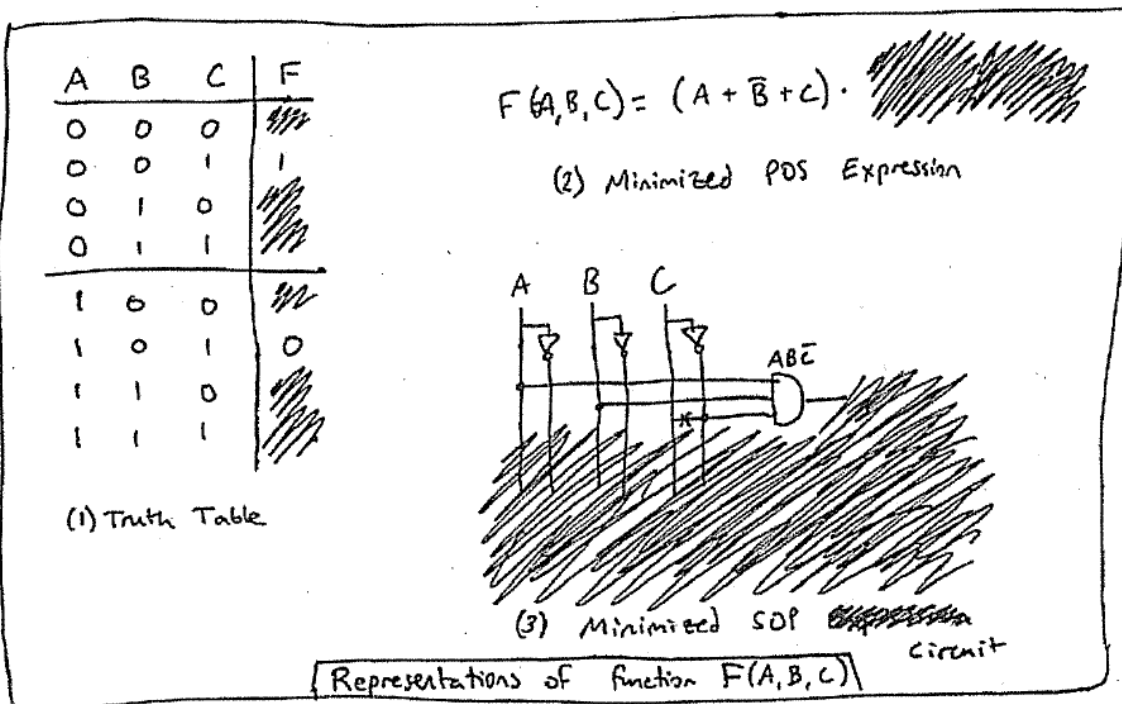 A B C F
0 0 0
0 0 1 1
0 1 0
0 1 1
1 0 0
1 0 1 0
1 1 0
1 1 1
(1) Truth Table
F(A,B,C) = (A + B̅ + C) ·
(2) Minimized POS Expression
A B C
ABC̅
(3) Minimized SOP
Circuit
Representations of function F(A,B,C)